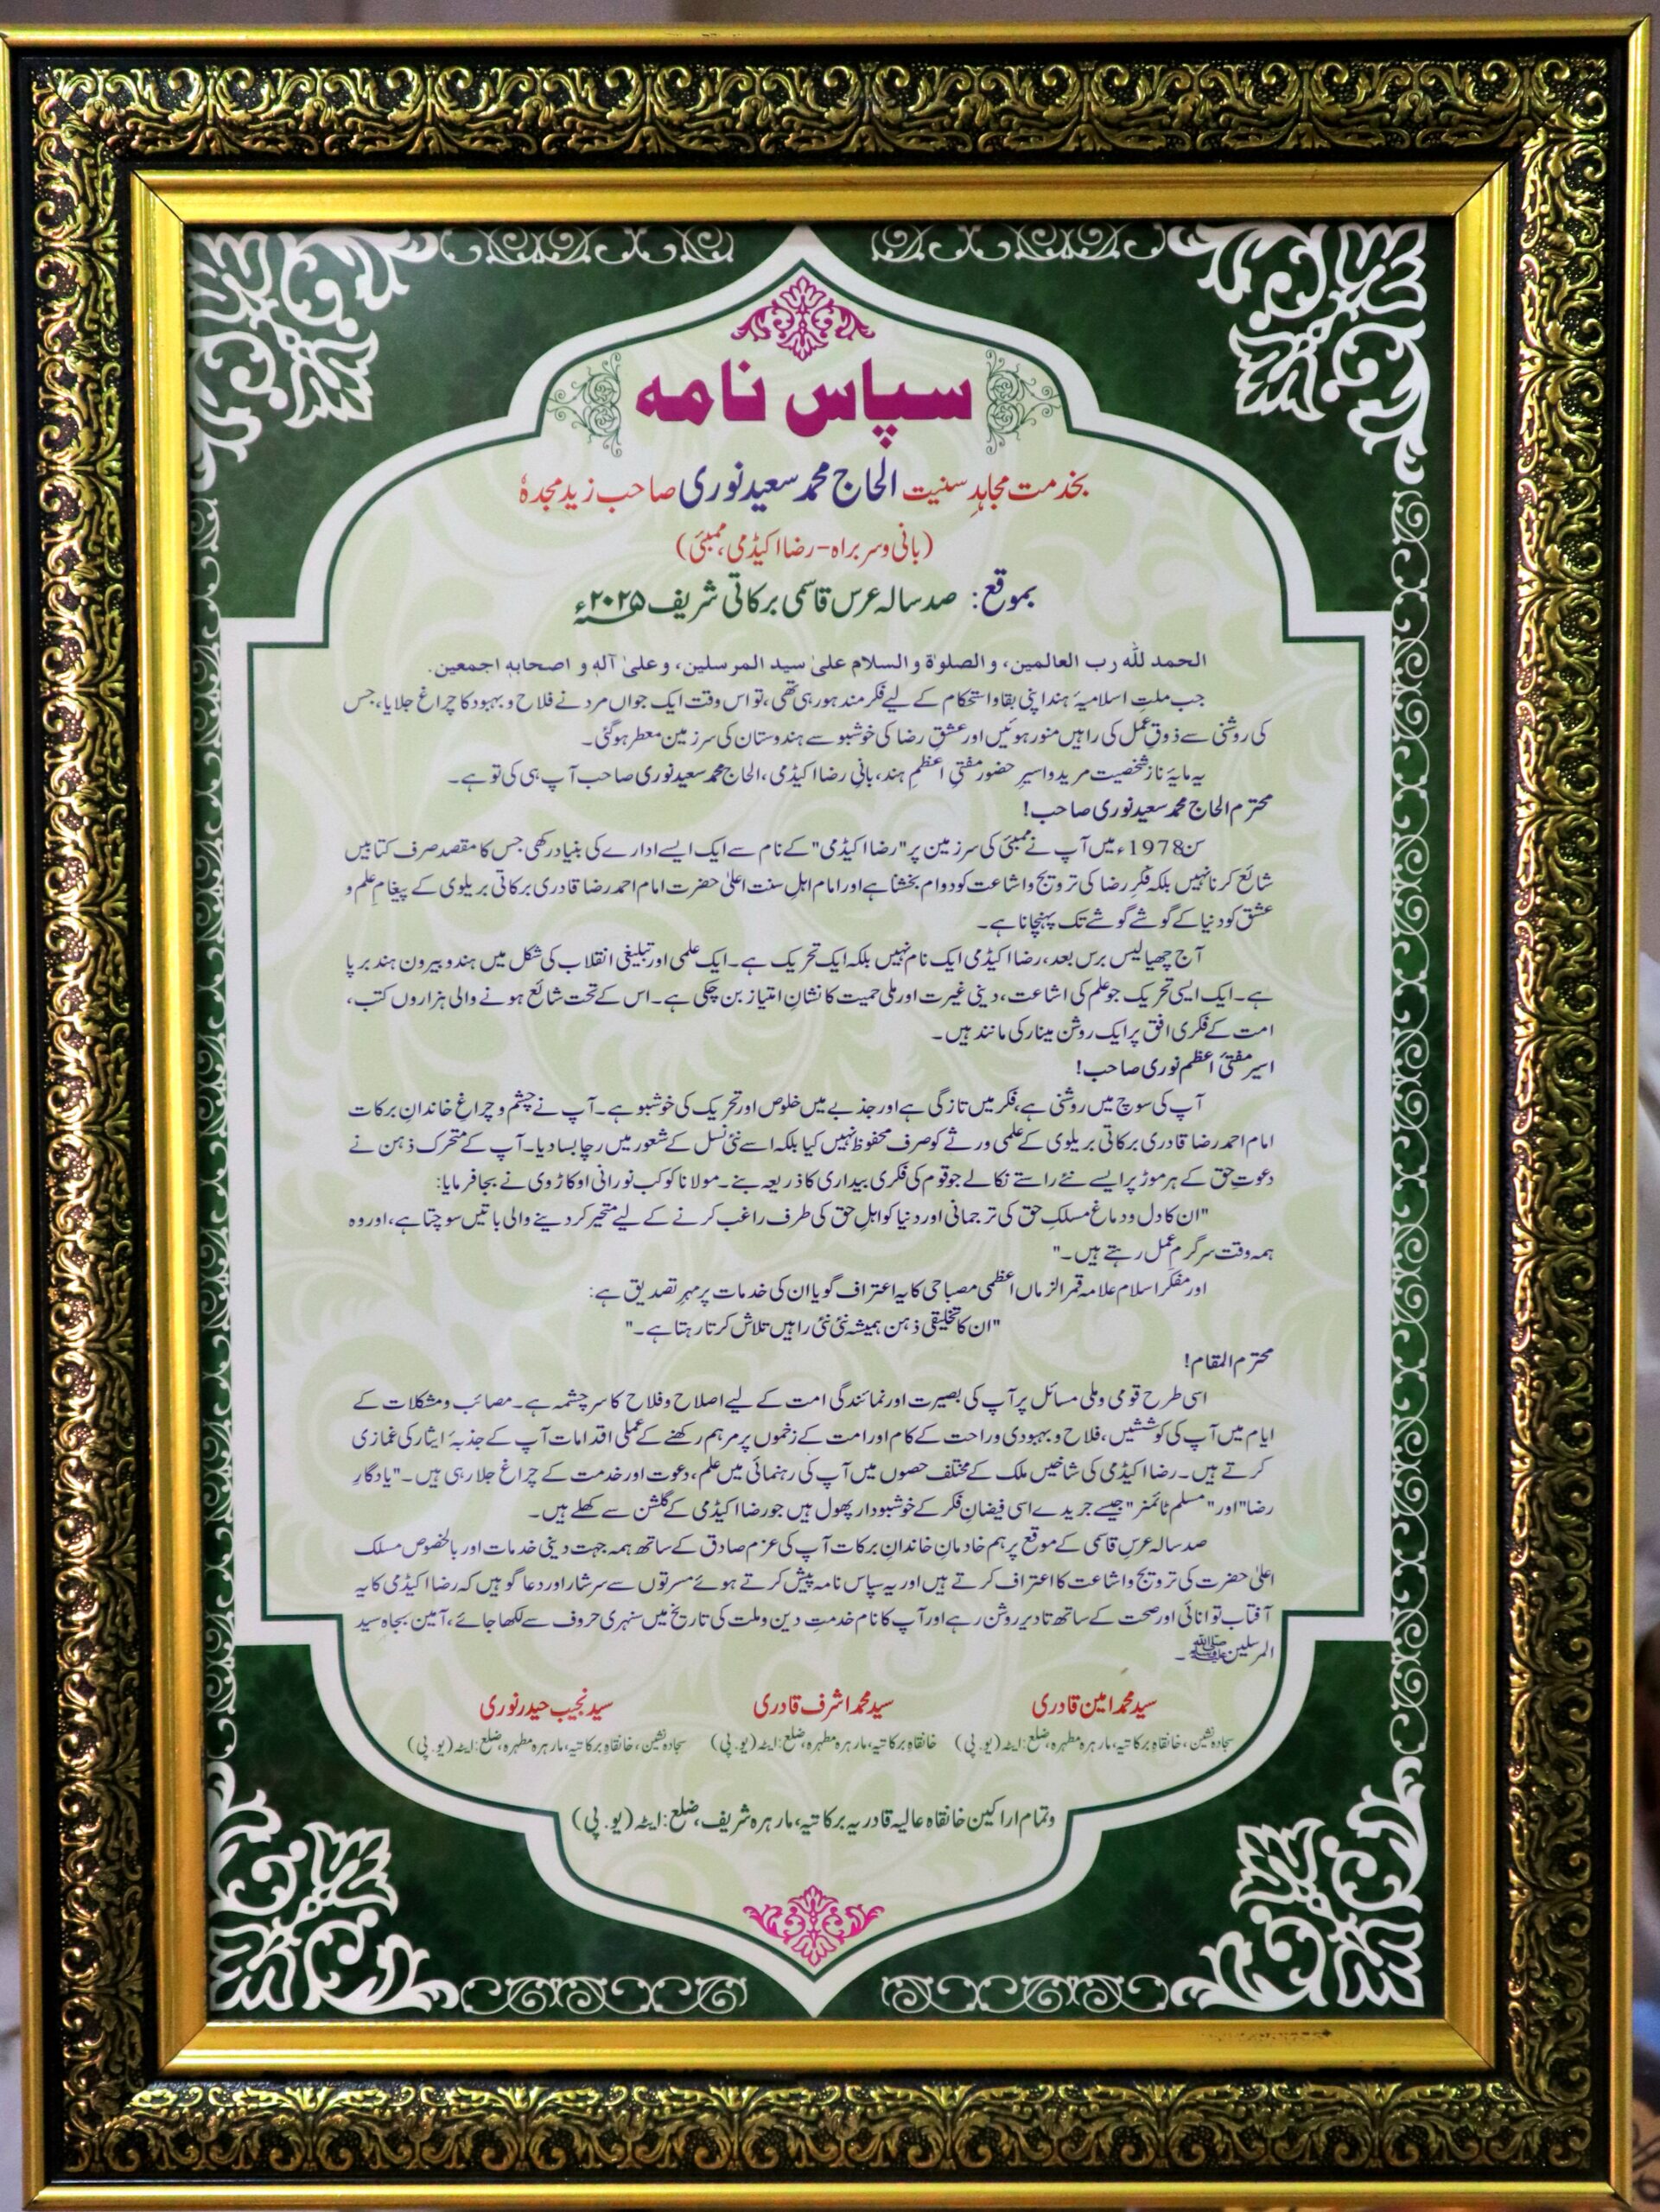 سپاس نامہ
بخدمت مجاہدِ سنیت الحاج محمد سعید نوری صاحب زید مجدہٗ
(بانی و سربراہ - رضا اکیڈمی، ممبئی)
بموقع: صد سالہ عرس قاسمی برکاتی شریف ۲۰۲۵ء
الحمد للّٰه رب العالمین، و الصلوٰة و السلام علیٰ سید المرسلین، و علیٰ آلهٖ و اصحابهٖ اجمعین.
جب ملتِ اسلامیۂ ہند اپنی بقا و استحکام کے لیے فکر مند ہو رہی تھی، تو اس وقت ایک جواں مرد نے فلاح و بہبود کا چراغ جلایا، جس
کی روشنی سے ذوقِ عمل کی راہیں منور ہوئیں اور عشقِ رضا کی خوشبو سے ہندوستان کی سرزمین معطر ہوگئی۔
یہ مایۂ ناز شخصیت مرید و اسیرِ حضور مفتیِ اعظمِ ہند، بانیِ رضا اکیڈمی، الحاج محمد سعید نوری صاحب آپ ہی کی تو ہے۔
محترم الحاج محمد سعید نوری صاحب!
سن 1978ء میں آپ نے ممبئی کی سرزمین پر "رضا اکیڈمی" کے نام سے ایک ایسے ادارے کی بنیاد رکھی جس کا مقصد صرف کتابیں
شائع کرنا نہیں بلکہ فکرِ رضا کی ترویج و اشاعت کو دوام بخشنا ہے اور امام اہلِ سنت اعلیٰ حضرت امام احمد رضا قادری برکاتی بریلوی کے پیغامِ علم و
عشق کو دنیا کے گوشے گوشے تک پہنچانا ہے۔
آج چھیالیس برس بعد، رضا اکیڈمی ایک نام نہیں بلکہ ایک تحریک ہے۔ ایک علمی اور تبلیغی انقلاب کی شکل میں ہند و بیرون ہند برپا
ہے۔ ایک ایسی تحریک جو علم کی اشاعت، دینی غیرت اور ملی حمیت کا نشانِ امتیاز بن چکی ہے۔ اس کے تحت شائع ہونے والی ہزاروں کتب،
امت کے فکری افق پر ایک روشن مینار کی مانند ہیں۔
اسیر مفتیٔ اعظم نوری صاحب!
آپ کی سوچ میں روشنی ہے، فکر میں تازگی ہے اور جذبے میں خلوص اور تحریک کی خوشبو ہے۔ آپ نے چشم و چراغ خاندانِ برکات
امام احمد رضا قادری برکاتی بریلوی کے علمی ورثے کو صرف محفوظ نہیں کیا بلکہ اسے نئی نسل کے شعور میں رچا بسا دیا۔ آپ کے متحرک ذہن نے
دعوتِ حق کے ہر موڑ پر ایسے نئے راستے نکالے جو قوم کی فکری بیداری کا ذریعہ بنے۔ مولانا کوکب نورانی اوکاڑوی نے بجا فرمایا:
"ان کا دل و دماغ مسلکِ حق کی ترجمانی اور دنیا کو اہلِ حق کی طرف راغب کرنے کے لیے متحیر کر دینے والی باتیں سوچتا ہے، اور وہ
ہمہ وقت سرگرمِ عمل رہتے ہیں۔"
اور مفکرِ اسلام علامہ قمر الزماں اعظمی مصباحی کا یہ اعتراف گویا ان کی خدمات پر مہرِ تصدیق ہے:
"ان کا تخلیقی ذہن ہمیشہ نئی نئی راہیں تلاش کرتا رہتا ہے۔"
محترم المقام!
اسی طرح قومی و ملی مسائل پر آپ کی بصیرت اور نمائندگی امت کے لیے اصلاح و فلاح کا سرچشمہ ہے۔ مصائب و مشکلات کے
ایام میں آپ کی کوششیں، فلاح و بہبودی و راحت کے کام اور امت کے زخموں پر مرہم رکھنے کے عملی اقدامات آپ کے جذبۂ ایثار کی غمازی
کرتے ہیں۔ رضا اکیڈمی کی شاخیں ملک کے مختلف حصوں میں آپ کی رہنمائی میں علم، دعوت اور خدمت کے چراغ جلا رہی ہیں۔ "یادگارِ
رضا" اور "مسلم ٹائمز" جیسے جریدے اسی فیضانِ فکر کے خوشبودار پھول ہیں جو رضا اکیڈمی کے گلشن سے کھلے ہیں۔
صد سالہ عرسِ قاسمی کے موقع پر ہم خادمانِ خاندانِ برکات آپ کی عزم صادق کے ساتھ ہمہ جہت دینی خدمات اور بالخصوص مسلک
اعلیٰ حضرت کی ترویج و اشاعت کا اعتراف کرتے ہیں اور یہ سپاس نامہ پیش کرتے ہوئے مسرتوں سے سرشار اور دعا گو ہیں کہ رضا اکیڈمی کا یہ
آفتاب توانائی اور صحت کے ساتھ تا دیر روشن رہے اور آپ کا نام خدمتِ دین و ملت کی تاریخ میں سنہری حروف سے لکھا جائے، آمین بجاہ سید
المرسلین ﷺ۔
سید محمد امین قادری
سجادہ نشین، خانقاہِ برکاتیہ، مارہرہ مطہرہ، ضلع: ایٹہ (یو. پی)
سید محمد اشرف قادری
خانقاہِ برکاتیہ، مارہرہ مطہرہ، ضلع: ایٹہ (یو. پی)
سید نجیب حیدر نوری
سجادہ نشین، خانقاہِ برکاتیہ، مارہرہ مطہرہ، ضلع: ایٹہ (یو. پی)
و تمام اراکین خانقاہ عالیہ قادریہ برکاتیہ، مارہرہ شریف، ضلع: ایٹہ (یو. پی)